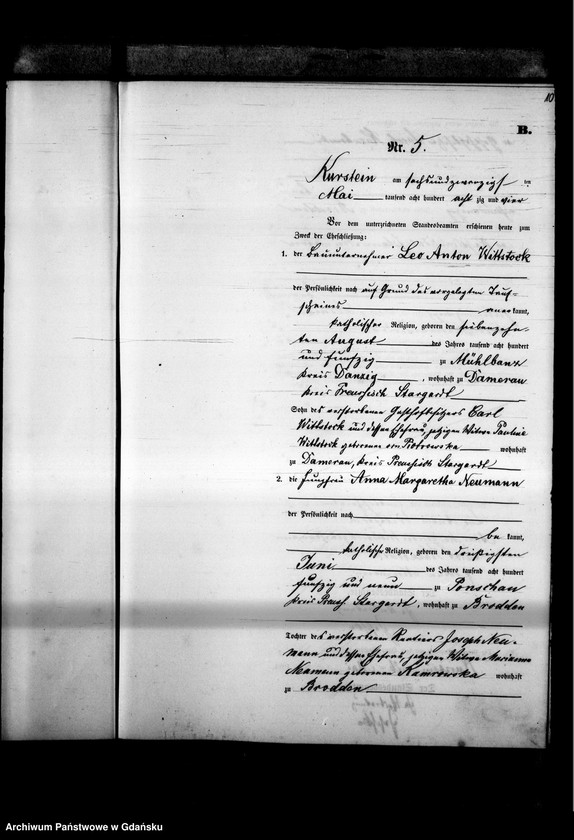 10
B.
Nr. 5.
Kurstein am sechsundzwanzigsten
Mai tausend acht hundert achtzig und vier
Vor dem unterzeichneten Standesbeamten erschienen heute zum
Zweck der Eheschließung:
1. der Bauunternehmer Leo Anton Wittstock
der Persönlichkeit nach auf Grund des vorgelegten Tauf-
scheines anerkannt,
katholischer Religion, geboren den siebenzehn-
ten August des Jahres tausend acht hundert
und fünfzig zu Mühlbanz
Kreis Danzig, wohnhaft zu Damerau
Kreis Preussisch Stargardt
Sohn des verstorbenen Carl
Wittstock und dessen Ehefrau, jetzigen Witwe Pauline
Wittstock geborenen von Piotrowska wohnhaft
zu Damerau, Kreis Preussisch Stargardt
2. die Jungfrau Anna Margaretha Neumann
der Persönlichkeit nach
bekannt,
katholischer Religion, geboren den dreißigsten
Juni des Jahres tausend acht hundert
fünfzig und neun zu Ponschau
Kreis Preuß. Stargardt, wohnhaft zu Brodden
Tochter des verstorbenen Rentiers Joseph Neu-
mann und dessen Ehefrau, jetzigen Witwe Marianna
Neumann geborenen Kamrowska wohnhaft
zu Brodden
Archiwum Państwowe w Gdańsku